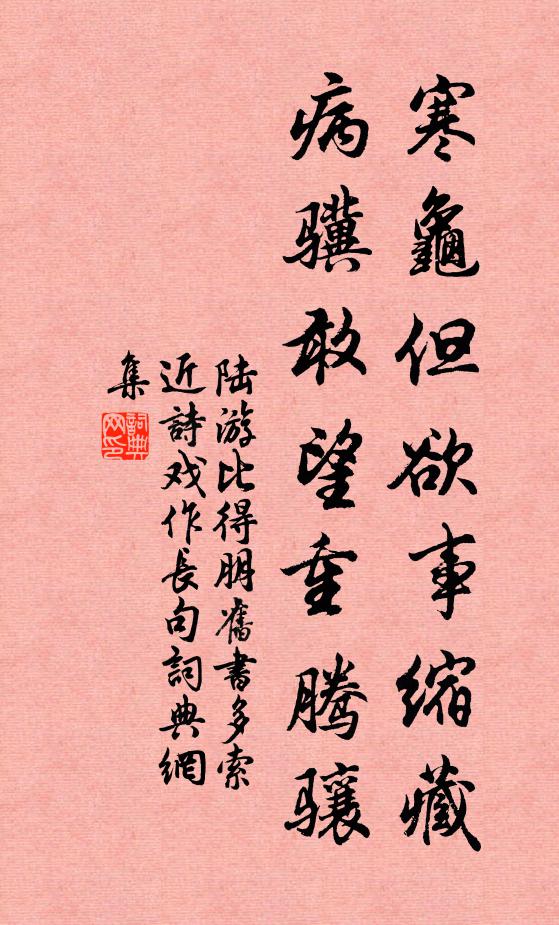 寒龜但欲事縮藏
病骥敢望重腾骧
陆游比得朋舊書多索
近詩戏作長句詞典網
集
詞典
网印